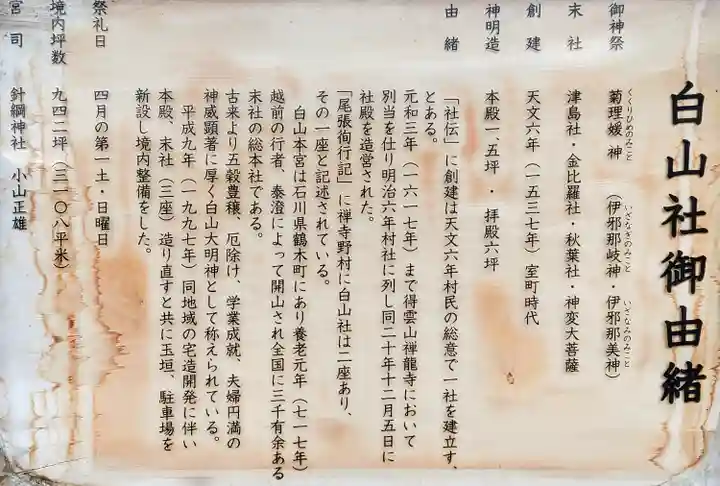 白山社御由緒
御神祭 菊理媛神 (伊邪那岐神・伊邪那美神)
くくりひめのみこと いざなぎのみこと いざなみのみこと
末社 津島社・金比羅社・秋葉社・神変大菩薩
創建 天文六年(一五三七年)室町時代
神明造 本殿一.五坪・拝殿六坪
由緒 「社伝」に創建は天文六年村民の総意で一社を建立す、
とある。
元和三年(一六一七年)まで得雲山禅龍寺において
別当を仕り明治六年村社に列し同二十年十二月五日に
社殿を造営された。
「尾張徇行記」に禅寺野村に白山社は二座あり、
その一座と記述されている。
白山本宮は石川県鶴木町にあり養老元年(七一七年)
越前の行者、泰澄によって開山され全国に三千有余ある
末社の総本社である。
古来より五穀豊穣、厄除け、学業成就、夫婦円満の
神威顕著に厚く白山大明神として称えられている。
平成九年(一九九七年)同地域の宅造開発に伴い
本殿、末社(三座)造り直すと共に玉垣、駐車場を
新設し境内整備をした。
祭礼日 四月の第一土・日曜日
境内坪数 九四二坪(三一〇八平米)
宮司 針綱神社 小山正雄